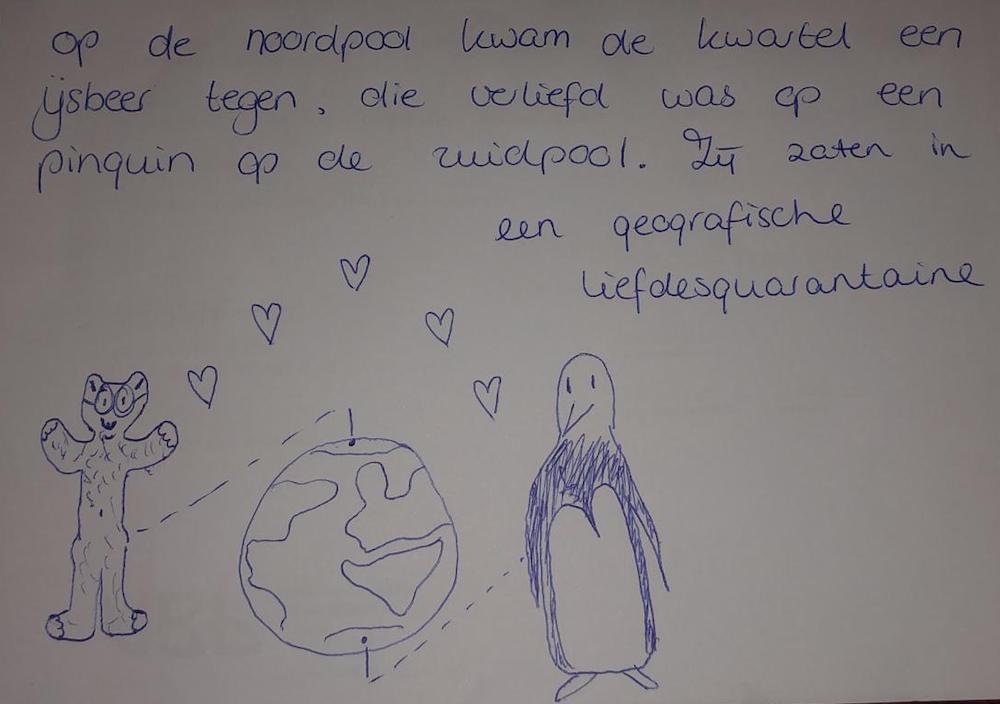 op de noordpool kwam de kwartel een
ijsbeer tegen, die verliefd was op een
pinquin op de zuidpool. Zij zaten in
een geografische
liefdesquarantaine